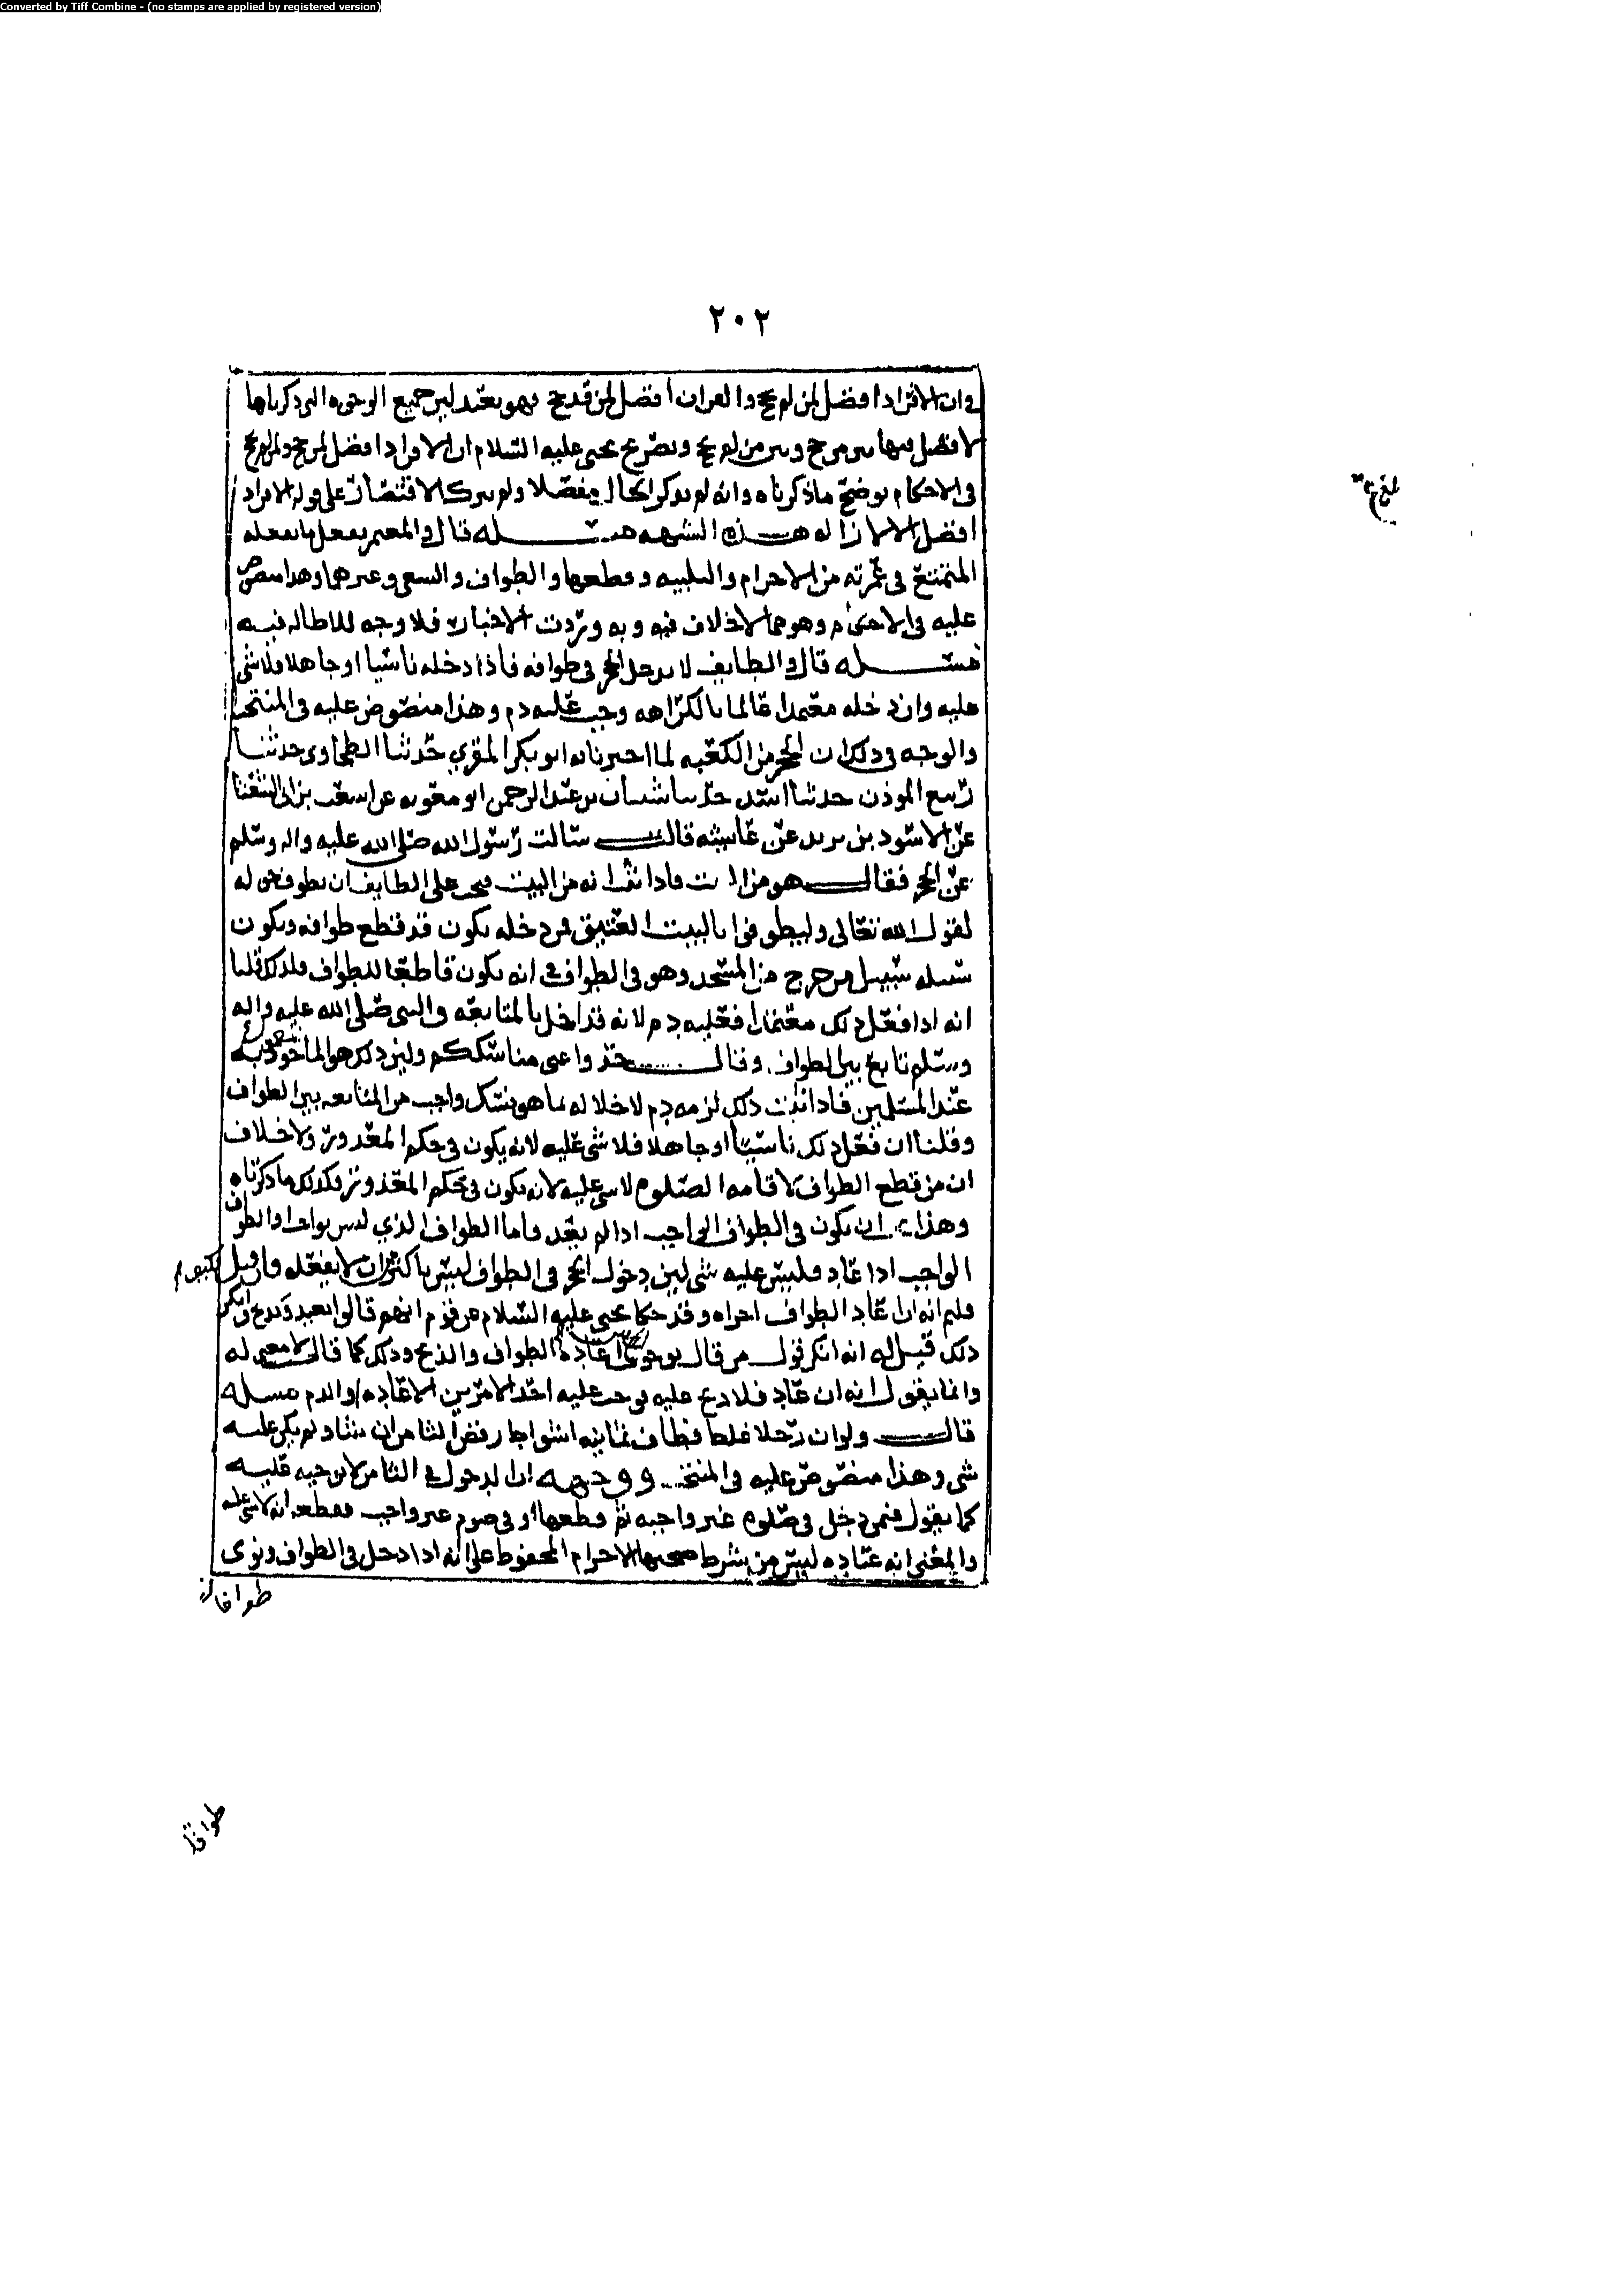 Converted by Tiff Combine - (no stamps are applied by registered version)
٢٠٢
وان الافراد افضل لمن لم يحج والقران افضل لمن قد حج فهو بعيد لين جميع الوجوه التي ذكرناها
لا فصل فيها بين من حج وبين من لم يحج وتصريح يحيى عليه السلام ان الافراد افضل لمن حج ولمن لم يحج
في الاحكام يوضح ما ذكرناه وانه لم يذكر الحال مفصلا ولم يترك الاقتصار على قوله الافراد
افضل الا لازاله هذه الشبهه مسئله قال والمعتمر يفعل ما يفعله
المتمتع في عمرته من الاحرام والتلبيه وقطعها والطواف والسعي وغيرهما وهذا منصوص
عليه في الاحكام وهو مما لا خلاف فيه وبه وردت الاخبار فلا وجه للاطاله فيه
مسئله قال والطايف لا يدخل الحجر في طوافه فاذا دخله ناسيا او جاهلا فلا شي
عليه وان دخله معتمدا عالما بالكراهه وجب عليه دم وهذا منصوص عليه في المنتخب
والوجه في ذلك ان الحجر من الكعبه لما اخبرنا به ابو بكر المقري حدثنا الطحاوي حدثنا
ربيع الموذن حدثنا اسد حدثنا شيبان بن عبد الرحمن ابو معويه عن اشعث بن ابي الشعثا
عن الاسود بن يزيد عن عايشه قالت سالت رسول الله صلى الله عليه واله وسلم
عن الحجر فقال هو من البيت فاذا ثبت انه من البيت فيجب على الطايف ان يطوف حوله
لقول الله تعالى وليطوفوا بالبيت العتيق فمن دخله يكون قد قطع طوافه ويكون
سبيله سبيل من خرج من المسجد وهو في الطواف في انه يكون قاطعا للطواف فلذلك قلنا
انه اذا فعل ذلك معتمدا فعليه دم لانه قد اخل بالمتابعه والنبي صلى الله عليه واله
وسلم تابع بين الطواف وقال خذوا عني مناسككم ولين ذلك هو الماخوذ به
عند المسلمين فاذا ثبت ذلك لزمه دم لاخلاله بما هو نسك واجب من المتابعه بين الطواف
وقلنا ان فعل ذلك ناسيا او جاهلا فلا شي عليه لانه يكون في حكم المعذور ولا خلاف
ان من قطع الطواف لاقامه الصلوه لا شي عليه لانه يكون في حكم المعذور فكذلك ما ذكرناه
وهذا ان يكون في الطواف الواجب اذا لم يعد فاما الطواف الذي ليس بواجب او الطواف
الواجب اذا عاد فليس عليه شي لين دخول الحجر في الطواف ليس باكثر من ان لا يفعله فان قيل
فلم انه ان عاد الطواف اجزاه وقد حكا يحيى عليه السلام عن قوم انهم قالوا يعيد ويذبح وانكر
ذلك قيل له انه انكر قول من قال بوجوب اعادة الطواف والذبح وذلك كما قال لا معنى له
وانما يقول انه ان عاد فلا دم عليه يوجب عليه احد الامرين الاعاده او الدم مسئله
قال ولو ان رجلا غلط فطاف ثمانيه اشواط رفض الثامن ان شاء ولم يكن عليه
شي وهذا منصوص عليه في المنتخب ووجهه ان الدخول في الثامن لا يوجبه عليه
كما يقول فيمن دخل في صلوه غير واجبه ثم قطعها او في صوم غير واجب فقطعه انه لا شي عليه
والمعنى انه عباده ليس من شرط صحتها الاحرام المحفوظ على انه اذا دخل في الطواف ونوى
طوافا
طوافا